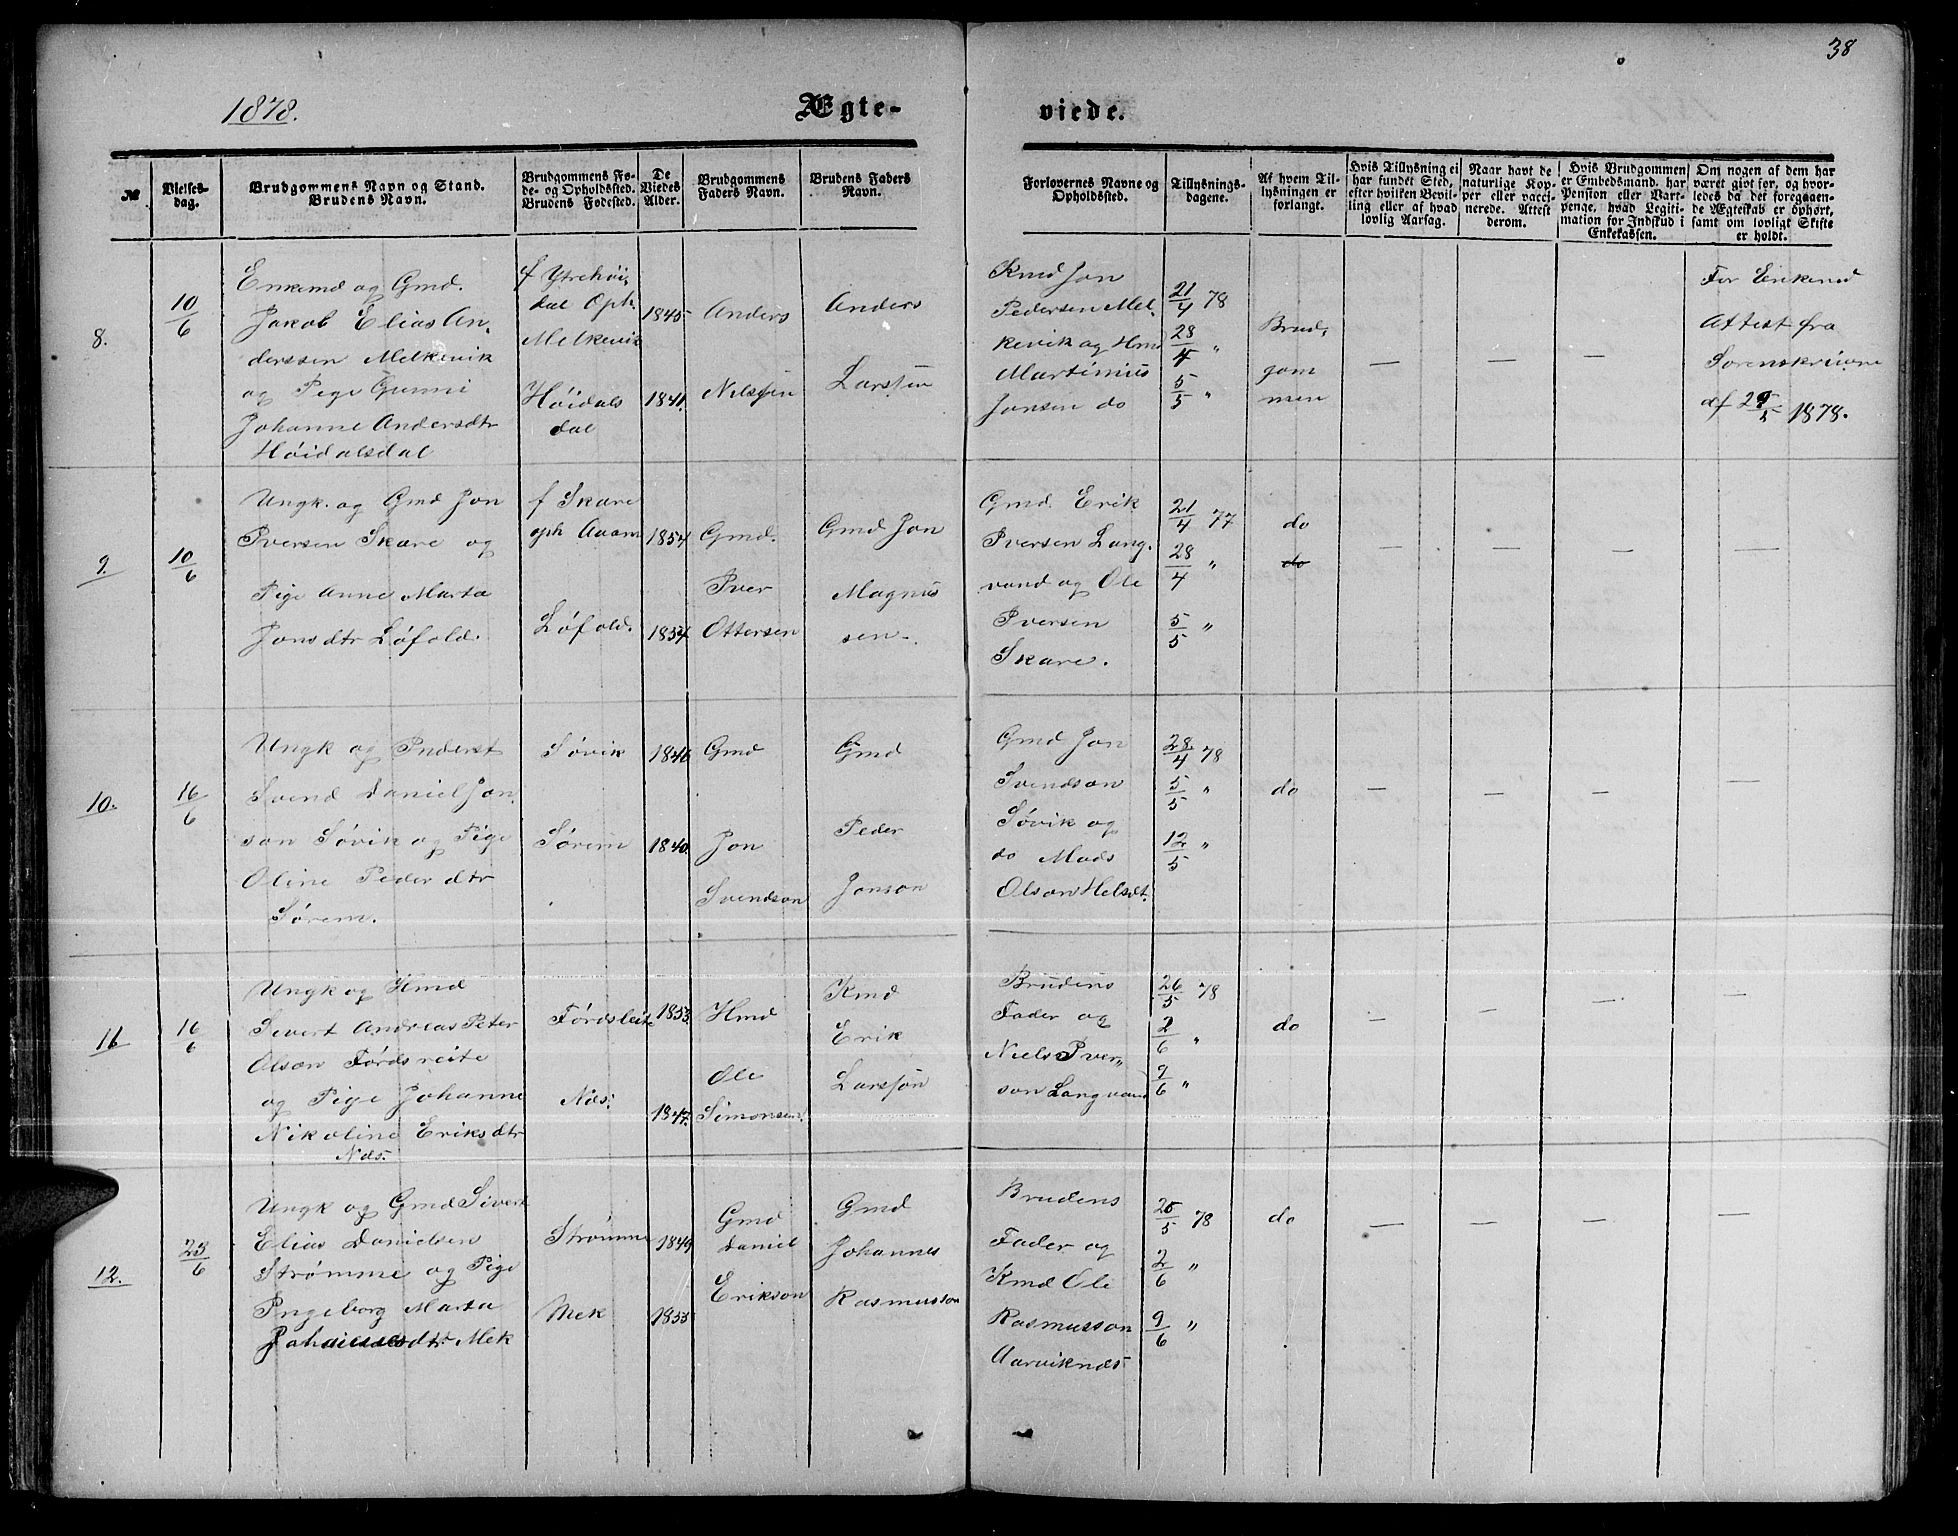 38
1878.
Ægte-
viede.
№
Vielses-
dag.
Brudgommens Navn og Stand.
Brudens Navn.
Brudgommens Fø-
de- og Opholdssted.
Brudens Fødested.
De
Viedes
Alder.
Brudgommens
Faders Navn.
Brudens Faders
Navn.
Forlovernes Navne og
Opholdssted.
Tillysnings-
dagene.
Af hvem Til-
lysningen er
forlangt.
Hvis Tillysning ei
har fundet Sted,
efter hvilken Bevil-
ling eller af hvad
lovlig Aarsag.
Naar havt de
naturlige Kop-
per eller vacci-
nerede. Attest
derom.
Hvis Brudgommen
er Embedsmand, har
Pension eller Vart-
penge, hvad Legiti-
mation for Indskud i
Enkekassen.
Om nogen af dem har
været gift før, og hvor-
ledes da det foregaaen-
de Ægteskab er ophørt,
samt om lovligt Skifte
er holdt.
8.
10/6
Enkemd og Gmd.
Jakob Elias An-
derssen Melkevik
og Pige Gunni
Johanne Andersdtr
Høidalsdal
f Ytrehøi-
dal Oph.
Melkevik
Høidals
dal
1845
1841.
Anders
Nilssen
Anders
Larssen
Kmd Jon
Pedersen Mel-
kevik og Hmd
Martinius
Jonsen do
21/4 78
28/4 "
5/5 "
Brud-
gom
men
—
—
—
For Enkemd
Attest fra
Sorenskrivne
af 29/5 1878.
9.
10/6
Ungk. og Gmd Jon
Iversen Skare og
Pige Anne Marta
Jonsdtr Løfold.
f Skare
oph Aaam
Løfold.
1854
1854.
Gmd.
Iver
Ottersen
Gmd Jon
Magnus
sen.
Gmd. Erik
Iversen Lang-
vand og Ole
Iversen
Skare.
21/4 77
28/4 "
5/5 "
do
do
—
—
—
—
10.
16/6
Ungk og Inderst
Svend Daniel Jon-
son Søvik og Pige
Oline Peder dtr
Sørem.
Søvik
Sørem
1846
1840.
Gmd
Jon
Svendson
Gmd
Peder
Jonson
Gmd Jon
Svendson
Søvik og
do Mads
Olson Helsdt.
28/4 78
5/5 "
12/5 "
do
—
—
—
—
11
16/6
Ungk og Hmd
Sivert Andreas Peter
Olsen Førdsreite
og Pige Johanne
Nikoline Eriksdtr
Næs.
Førdsleite
Næs.
1853.
1847.
Hmd
Ole
Simonsen.
Kmd
Erik
Larssøn
Brudens
Fader og
Niels Iver-
son Langvand
26/5 78
2/6 "
9/6 "
do
—
—
—
—
12.
23/6
Ungk og Gmd Sivert
Elias Danielsen
Strømme og Pige
Ingeborg Marta
Johannesdtr Mek
Strømme
Mek
1849
1855
Gmd
Daniel
Erikson
Gmd
Johannes
Rasmusson
Brudens
Fader og
Kmd Ole
Rasmusson
Aarviknæs
26/5 78
2/6 "
9/6 "
do
—
—
—
—